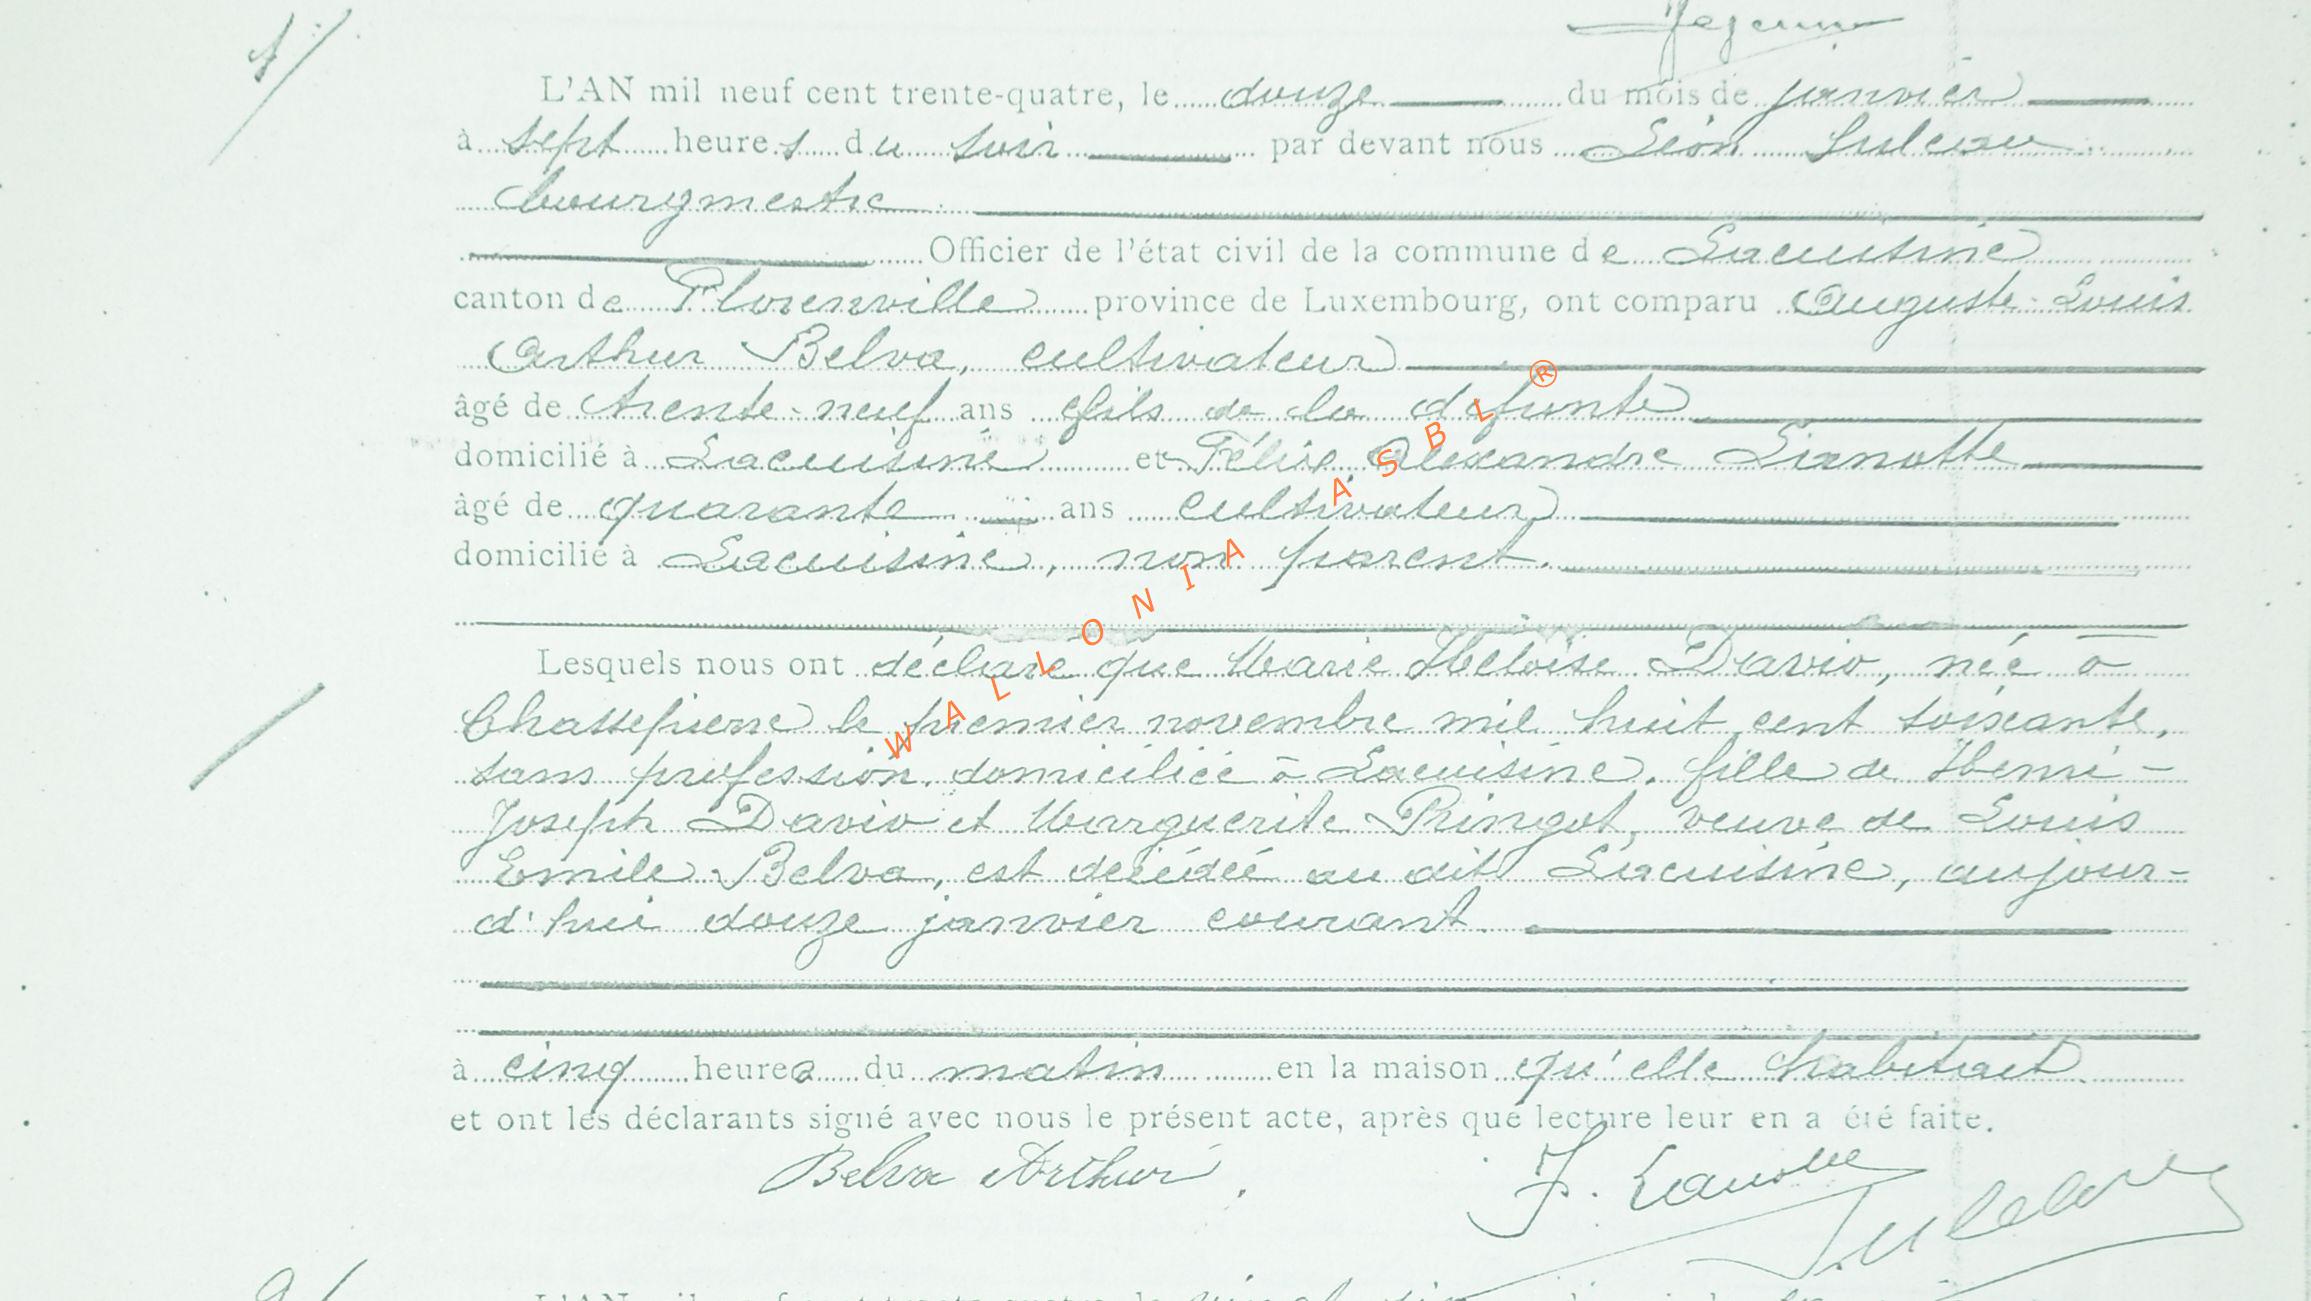 1/
L'AN mil neuf cent trente-quatre, le douze du mois de janvier
à sept heures du soir par devant nous Léon
bourgmestre
Officier de l'état civil de la commune de Lacuisine
canton de Florenville province de Luxembourg, ont comparu Auguste-Louis
Arthur Belva, cultivateur
âgé de trente-neuf ans fils de la défunte
domicilié à Lacuisine et Félix Alexandre Lianotte
âgé de quarante ans cultivateur
domicilié à Lacuisine, non parent.
Lesquels nous ont déclaré que Marie Héloïse Davio, née à
Chassepierre le premier novembre mil huit cent soixante,
sans profession, domiciliée à Lacuisine, fille de Henri-
Joseph Davio et Marguerite Pringot, veuve de Louis
Emile Belva, est décédée au dit Lacuisine, aujour-
d'hui douze janvier courant.
à cinq heures du matin en la maison qu'elle habitait
et ont les déclarants signé avec nous le présent acte, après que lecture leur en a été faite.
Belva Arthur
WALLONIA ASBL®